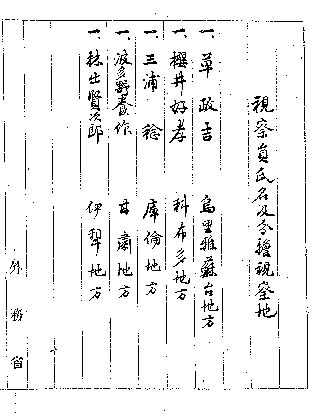 視察員氏名及分擔視察地
一、草政吉 烏里雅蘇台地方
一、櫻井好孝 科布多地方
一、三浦稔 庫倫地方
一、波多野養作 甘肅地方
一、林出賢次郎 伊犂地方
外務省